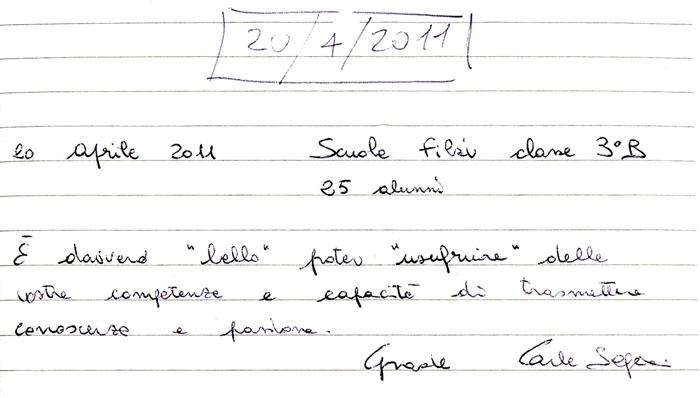 20/4/2011
20 aprile 2011 Scuole Filzi classe 3°B
25 alunni
È davvero "bello" poter "usufruire" delle
vostre competenze e capacità di trasmettere
conoscenze e passione.
Grazie Carla